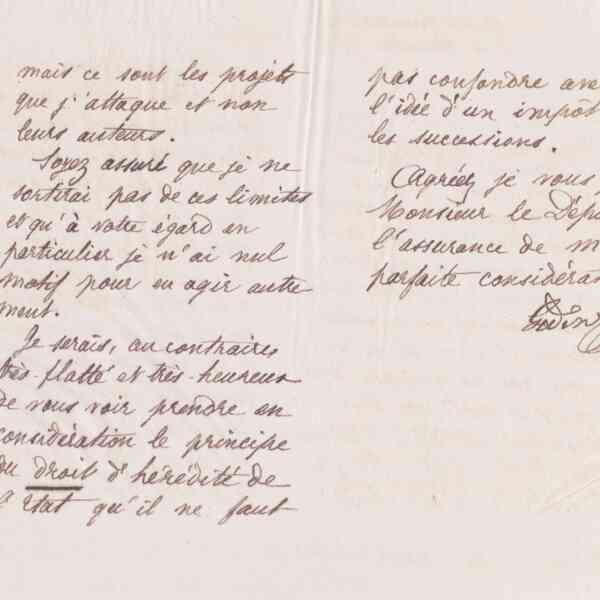 mais ce sont les projets
que j'attaque et non
leurs auteurs.
Soyez assuré que je ne
sortirai pas de ces limites
et qu'à votre égard en
particulier je n'ai nul
motif pour en agir autre
ment.
Je serais, au contraires
très-flatté et très-heureux
de vous voir prendre en
considération le principe
du droit d'hérédité de
l'Etat qu'il ne faut
pas confondre ave
l'idée d'un impôt
les successions.
Agréez je vous
Monsieur le Dépu
l'assurance de m
parfaite considérat
Godin